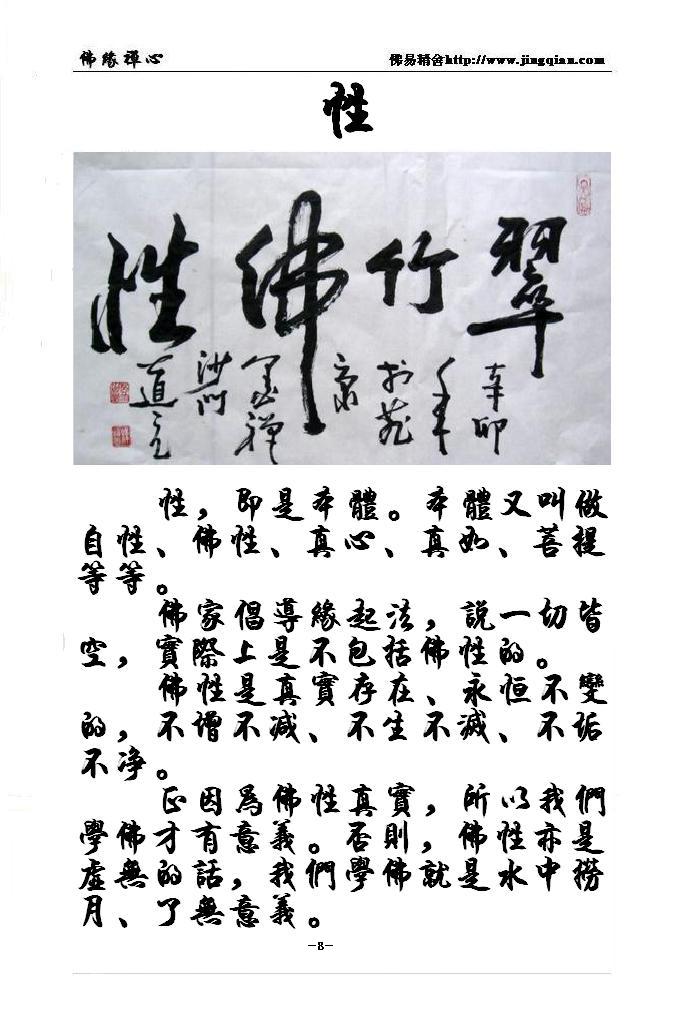 佛緣禪心
佛易精舍http://www.jingqian.com
性
翠竹佛性
辛卯
年
京
墨禪
沙門
道元
性，即是本體。本體又叫做
自性、佛性、真心、真如、菩提
等等。
佛家倡導緣起法，說一切皆
空，實際上是不包括佛性的。
佛性是真實存在、永恒不變
的，不增不减、不生不滅、不垢
不净。
正因為佛性真實，所以我們
學佛才有意義。否則，佛性亦是
虛無的話，我們學佛就是水中撈
月、了無意義。
-8-